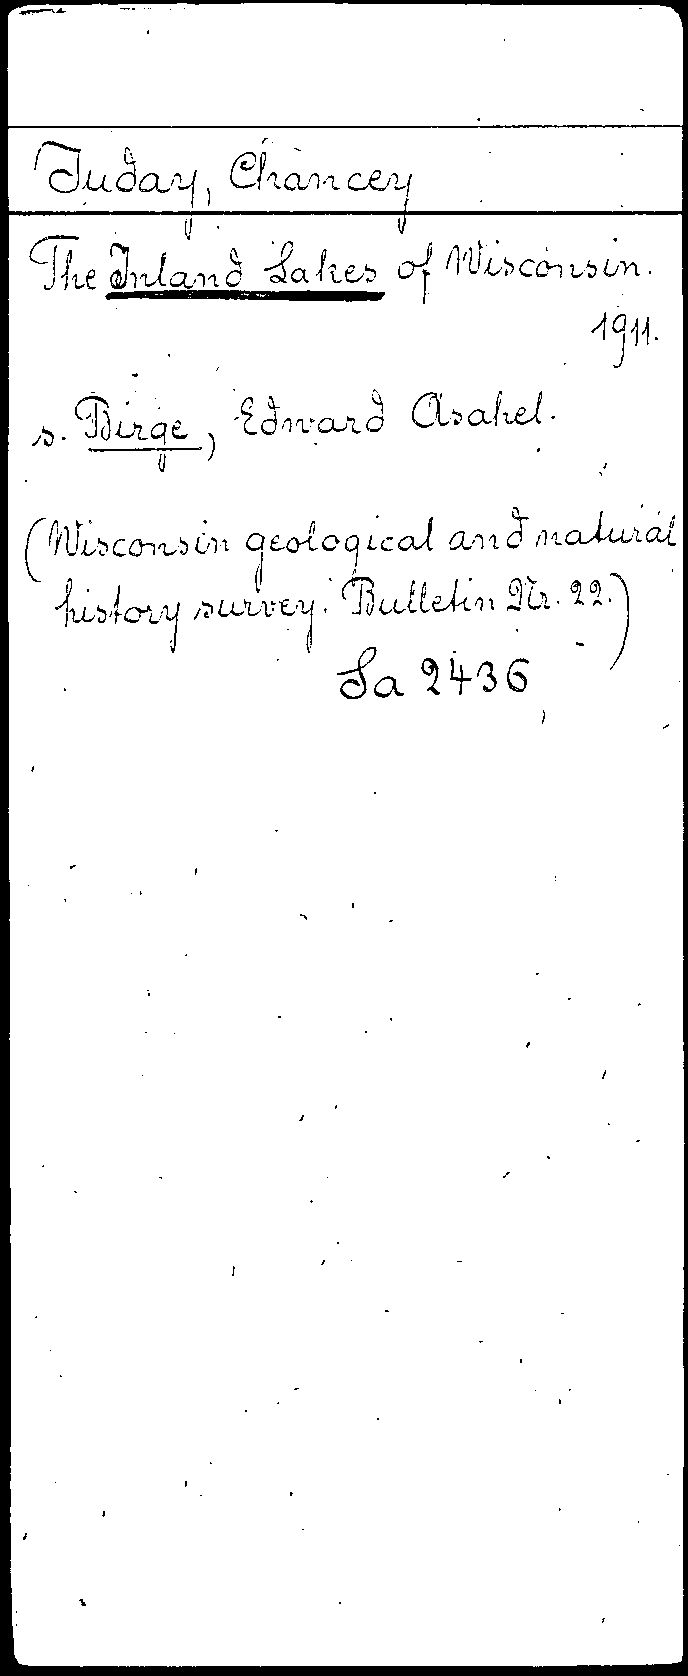 Juday, Chancey
The Inland Lakes of Wisconsin.
1911.
s. Birge, Edward Asahel.
(Wisconsin geological and natural
history survey. Bulletin Nr. 22.)
Sa 2436